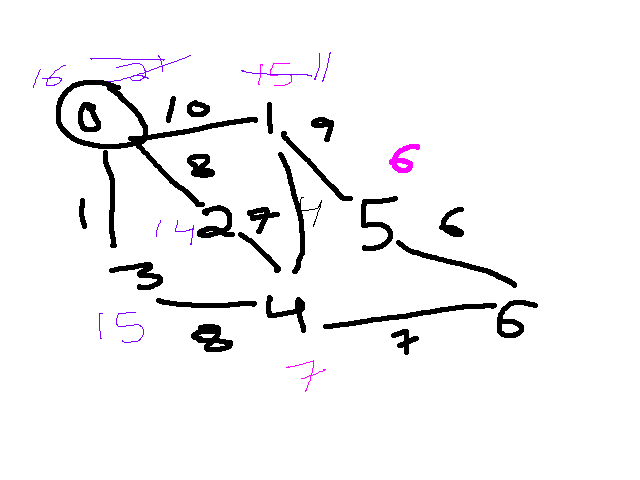 16 21 15 11
0 10 1 9
8 6
1 14 2 7 4 5 6
3
15 8 4 7 6
7